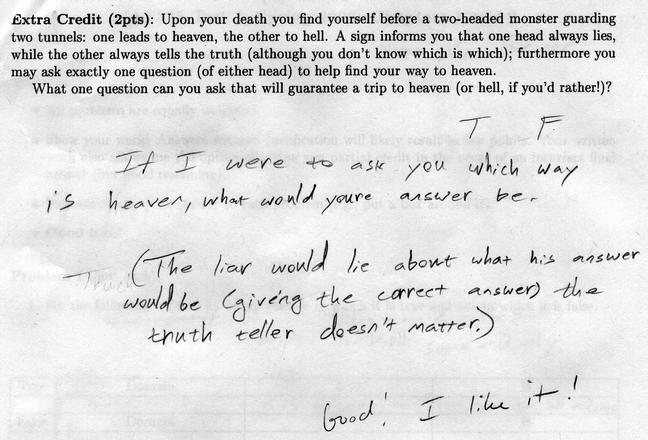 Extra Credit (2pts): Upon your death you find yourself before a two-headed monster guarding
two tunnels: one leads to heaven, the other to hell. A sign informs you that one head always lies,
while the other always tells the truth (although you don't know which is which); furthermore you
may ask exactly one question (of either head) to help find your way to heaven.
What one question can you ask that will guarantee a trip to heaven (or hell, if you'd rather!)?
T F
If I were to ask you which way
is heaven, what would youre answer be.
(The liar would lie about what his answer
would be (giving the correct answer) the
truth teller doesn't matter.)
Good! I like it!